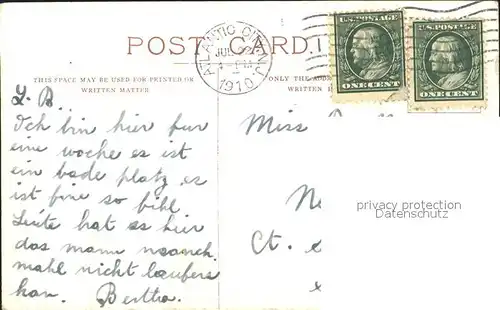 POST CARD.
ATLANTIC CITY, N.J.
JUL
1910
U.S. POSTAGE
ONE CENT
U.S. POSTAGE
ONE CENT
THIS SPACE MAY BE USED FOR PRINTED OR
WRITTEN MATTER
ONLY THE ADDR
WRITTEN
L. B.
Ich bin hier fur
eine woche es ist
ein bade platz es
ist fine so bihl
Leute hat es hier
das mann
mahl nicht laufers
kan. Bertha.
Miss
Ne
Ct.
privacy protection
Datenschutz